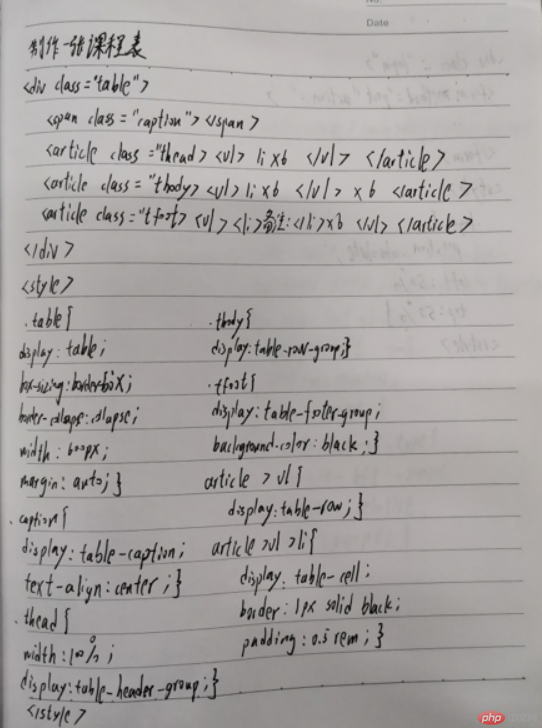 No.
Date
制作一张课程表
<div class="table">
<span class="caption"></span>
<article class="thead> <ul> li x6 </ul> </article>
<article class="tbody> <ul> li x6 </ul> x 6 </article>
<article class="tfoot> <ul> <li>备注:</li> x6 </ul> </article>
</div>
<style>
.table{
display: table;
box-sizing: border-box;
border-collapse: collapse;
width: 600px;
margin: auto;}
.caption{
display: table-caption;
text-align: center;}
.thead{
width: 100%;
display: table-header-group;}
</style>
.tbody{
display: table-row-group;}
.tfoot{
display: table-footer-group;
background-color: black;}
article > ul{
display: table-row;}
article >ul >li{
display: table-cell;
border: 1px solid black;
padding: 0.5rem;}
php